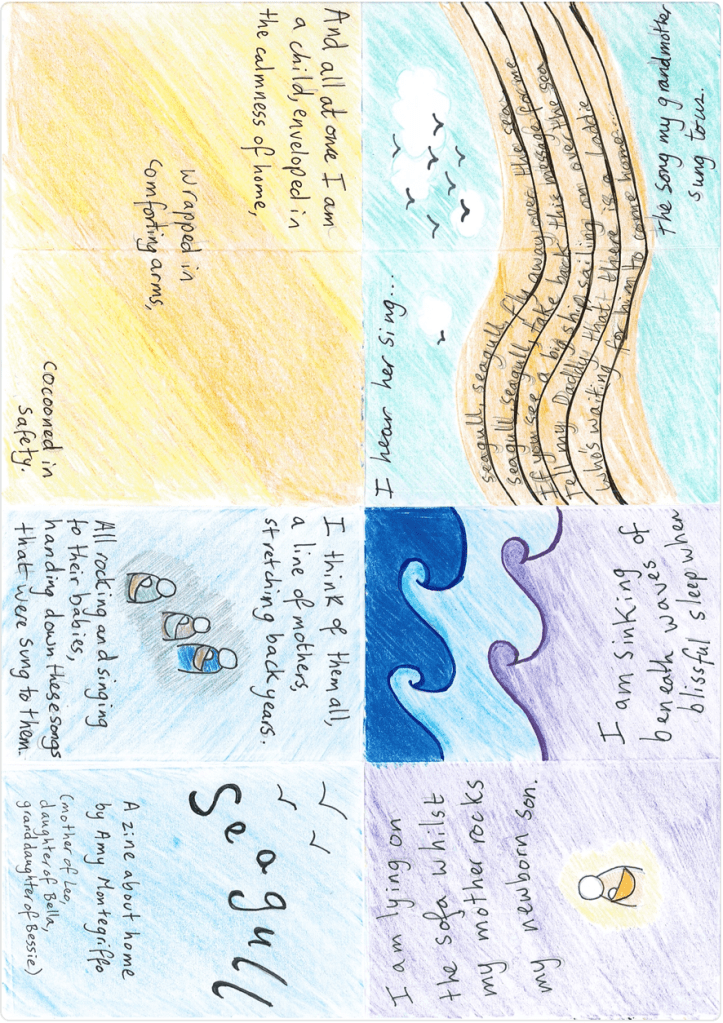 Seagull
A zine about home
by Amy Montegriffo
(mother of Leo,
daughter of Bella,
granddaughter of Bessie)
I am lying on
the sofa whilst
my mother rocks
my newborn son.
I am sinking
beneath waves of
blissful sleep when
I hear her sing...
seagull, seagull, fly away over the sea
seagull, seagull, take back this message for me
If you see a big ship sailing am over the sea
Tell my Daddy that there is a laddie
who's waiting for him to come home...
the song my grandmother
sung to us.
And all at once I am
a child, enveloped in
the calmness of home,
wrapped in
comforting arms,
cocooned in
safety.
I think of them all,
a line of mothers,
stretching back years.
All rocking and singing
to their babies,
handing down these songs
that were sung to them.